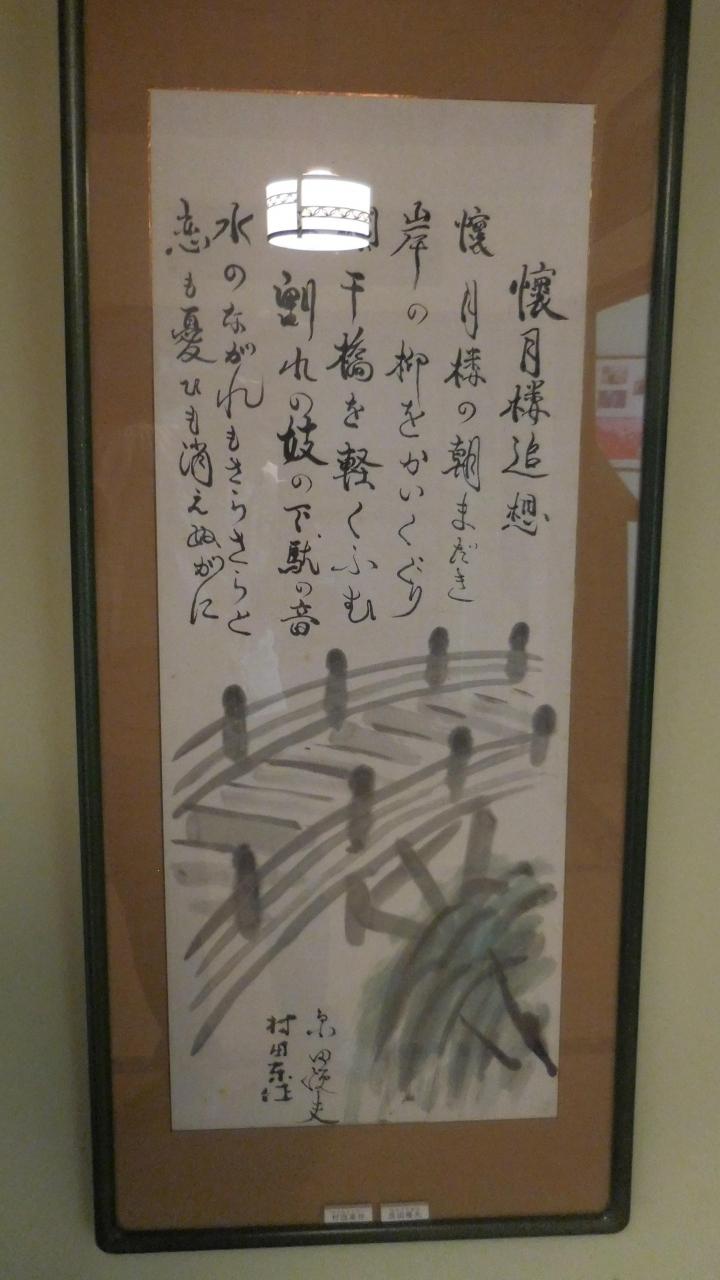 懐月楼追想
懐月楼の朝まだき
岸の柳をかいくぐり
干橋を軽くふむ
れの妓の下駄の音
水のながれもさらさらと
恋も憂ひも消えぬがに
村田